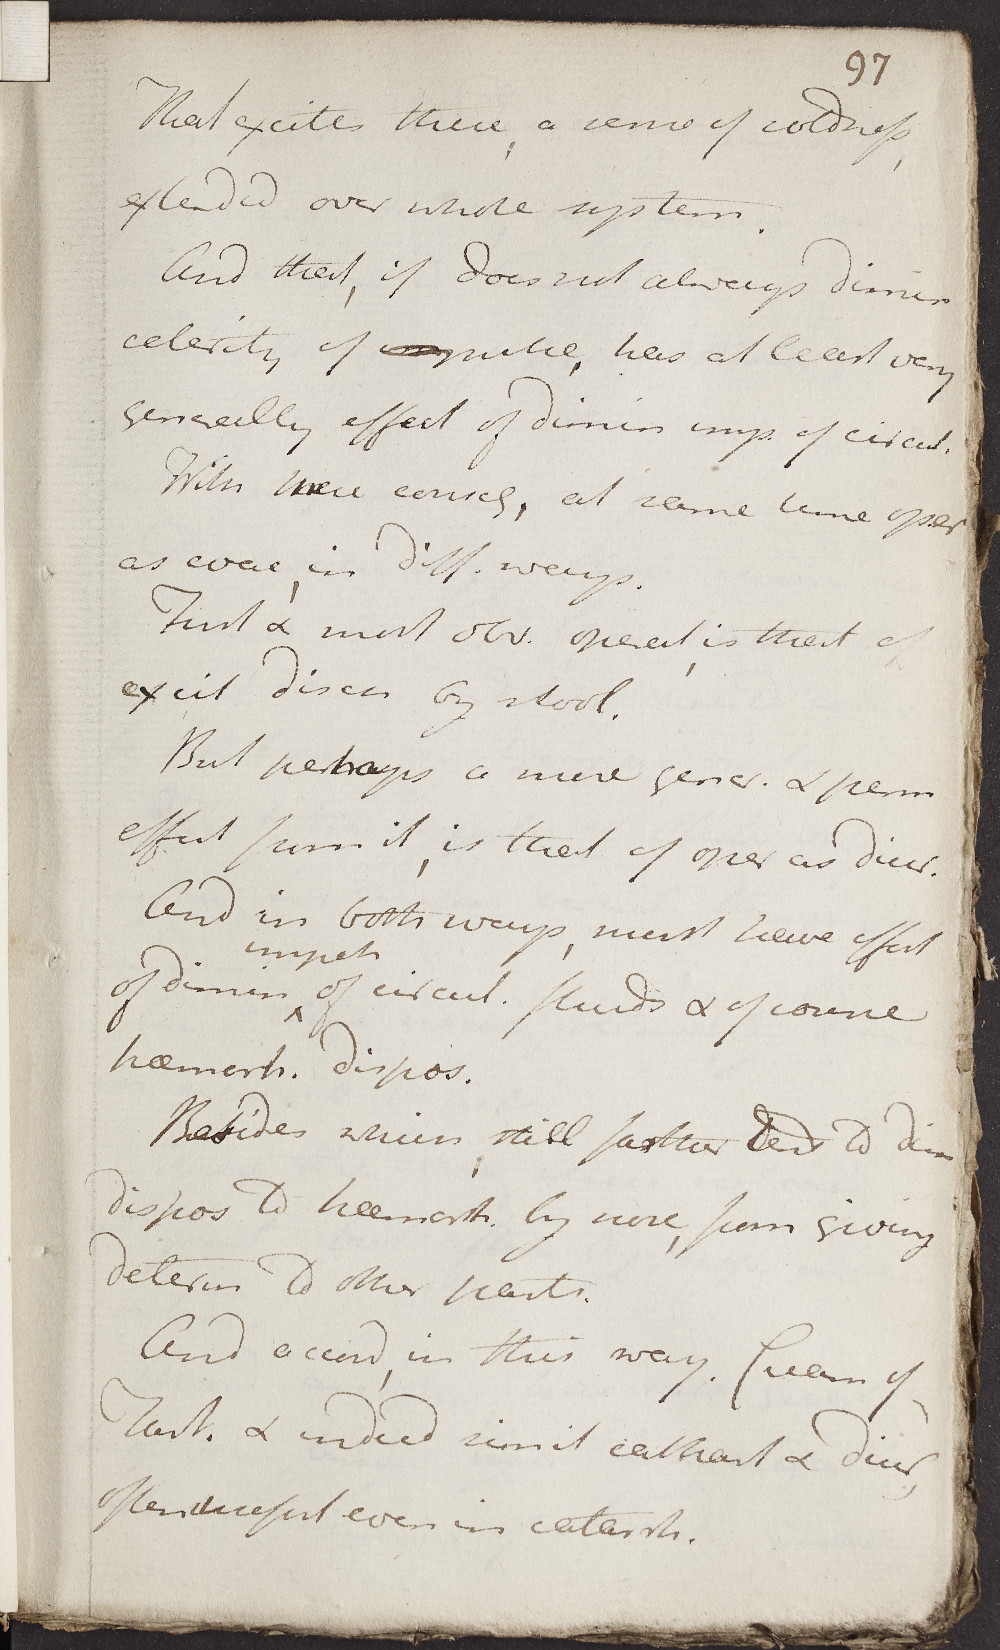 97
That excites there, a sense of coldness,
extended over whole system.
And that, if does not always dimin
celerity of pulse, has at least very
generally effect of dimin imp. of circul.
With these conseq, at same time oper
as evac, in diff. ways.
First & most obv. operat, is that of
excit discn by stool.
But perhaps a more gener. & perm
effect from it, is that of oper as diur.
And in both ways, must have effect
impet
of dimin of circul. fluids & of course
hæmorh. dispos.
Besides which, still farther tend to dim
dispos to hæmorh. by nore, from giving
determ to other parts.
And accord, in this way. Cream of
Tart. & indeed simil cathart & diur,
often useful even in catarrh.